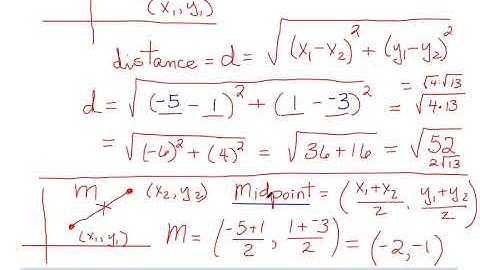 (x₁, y₁)
distance = d = √((x₁-x₂)² + (y₁-y₂)²)
d = √((-5 - 1)² + (1 - ⁻3)²) = √4·√13
= √4·13
= √((-6)² + (4)²) = √(36+16) = √52
2√13
m (x₂, y₂) Midpoint = (x₁+x₂/2, y₁+y₂/2)
(x₁, y₁) M = (-5+1/2, 1+⁻3/2) = (-2, -1)